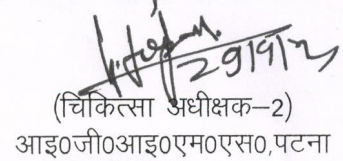 29/9/2
(चिकित्सा अधीक्षक–2)
आइ0जी0आइ0एम0एस0,पटना